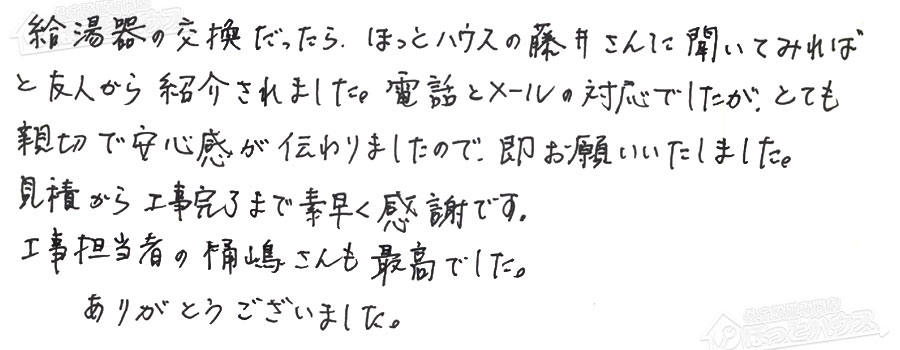 給湯器の交換だったら、ほっとハウスの藤井さんに聞いてみれば
と友人から紹介されました。電話とメールの対応でしたが、とても
親切で安心感が伝わりましたので、即お願いいたしました。
見積から工事完了まで素早く感謝です。
工事担当者の桶嶋さんも最高でした。
ありがとうございました。
ほっとハウス